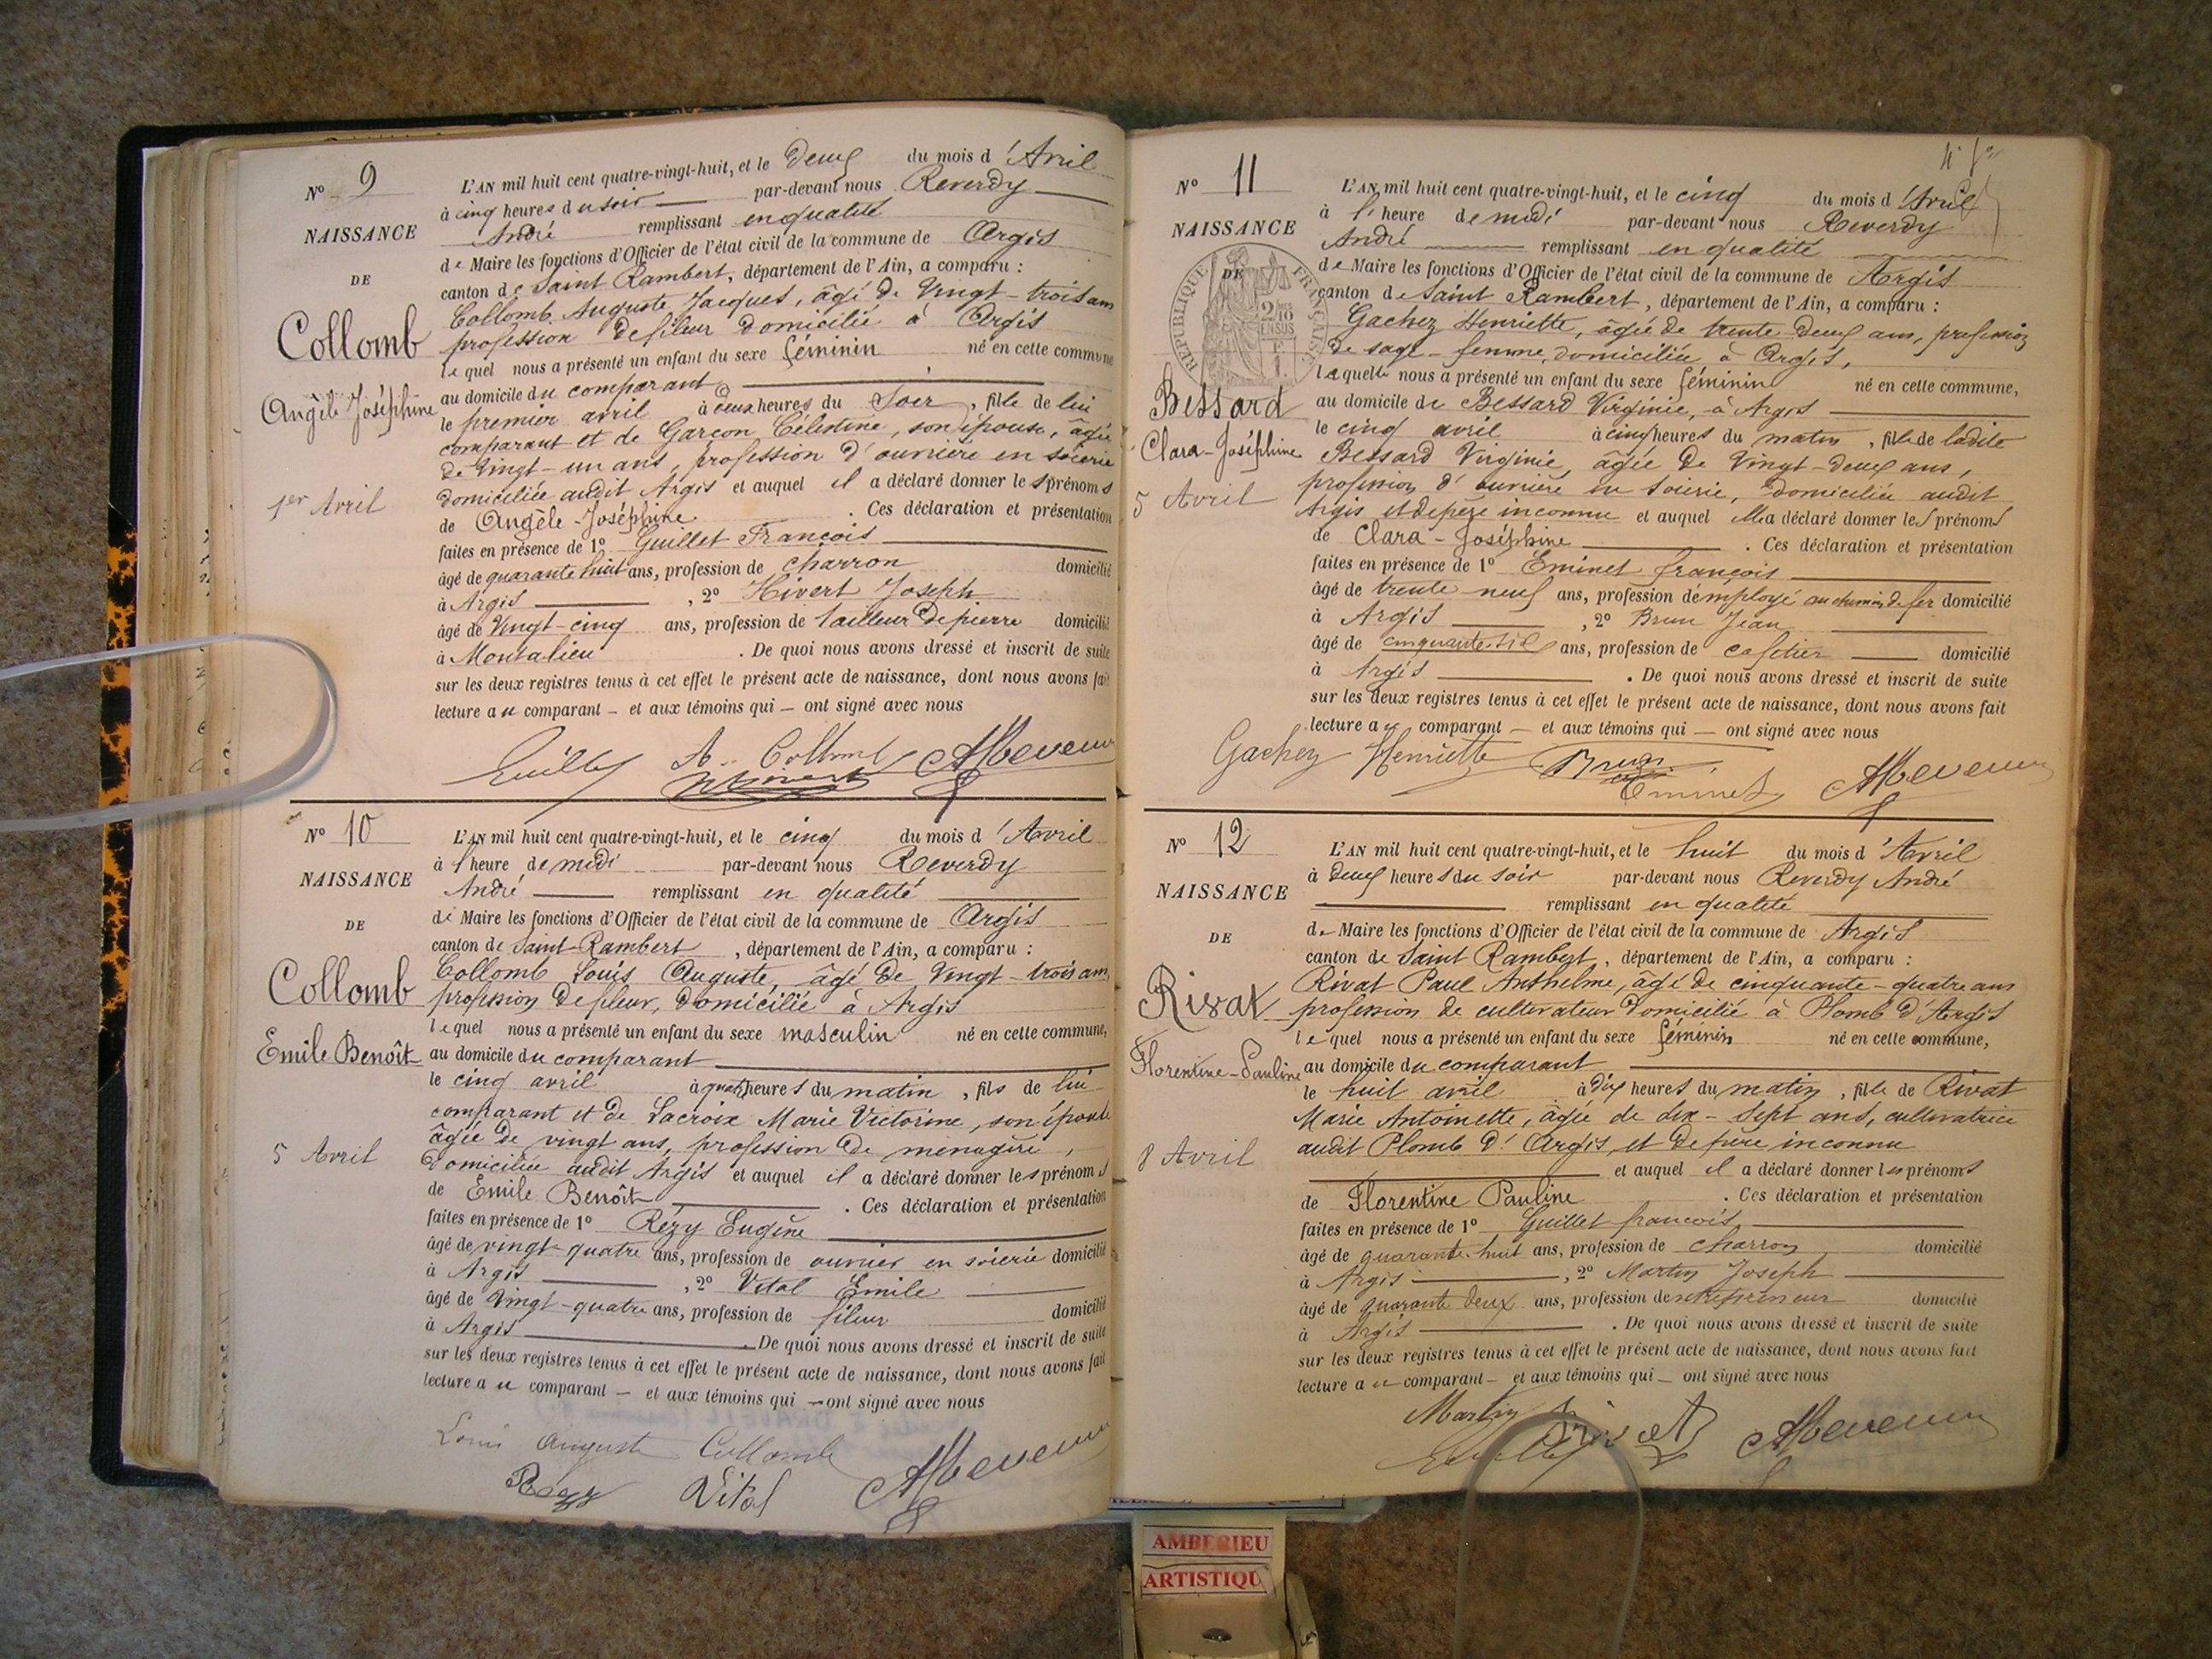 N° 9
NAISSANCE
DE
Collomb
Angèle Joséphine
1er Avril
L'AN mil huit cent quatre-vingt-huit, et le Deux du mois d'Avril
à cinq heures du soir par-devant nous Reverdy
André remplissant en qualité
de Maire les fonctions d'Officier de l'état civil de la commune de Argis
canton de Saint Rambert, département de l'Ain, a comparu :
Collomb Auguste Jacques, âgé de Vingt-trois ans
profession de fileur domicilié à Argis
lequel nous a présenté un enfant du sexe féminin né en cette commune
au domicile du comparant
le premier avril à deux heures du Soir, fille de lui
comparant et de Garçon Célestine, son épouse, âgée
de Vingt-un ans, profession d'ouvrière en soierie
domiciliée audit Argis et auquel il a déclaré donner les prénoms
de Angèle-Joséphine. Ces déclaration et présentation
faites en présence de 1° Guillet François
âgé de quarante huit ans, profession de charron domicilié
à Argis, 2° Hivert Joseph
âgé de Vingt-cinq ans, profession de tailleur de pierre domicilié
à Montalieu. De quoi nous avons dressé et inscrit de suite
sur les deux registres tenus à cet effet le présent acte de naissance, dont nous avons fait
lecture au comparant - et aux témoins qui - ont signé avec nous
Guillet A. Collomb
N° 10
NAISSANCE
DE
Collomb
Emile Benoît
5 Avril
L'AN mil huit cent quatre-vingt-huit, et le cinq du mois d'Avril
à l'heure de midi par-devant nous Reverdy
André remplissant en qualité
de Maire les fonctions d'Officier de l'état civil de la commune de Argis
canton de Saint-Rambert, département de l'Ain, a comparu :
Collomb Louis Auguste, âgé de Vingt-trois ans,
profession de fileur, domicilié à Argis
lequel nous a présenté un enfant du sexe masculin né en cette commune,
au domicile du comparant
le cinq avril à quatre heures du matin, fils de lui
comparant et de Lacroix Marie Victorine, son épouse
âgée de vingt ans, profession de ménagère,
domiciliée audit Argis et auquel il a déclaré donner les prénoms
de Emile Benoît. Ces déclaration et présentation
faites en présence de 1° Rézy Eugène
âgé de vingt-quatre ans, profession de ouvrier en soierie domicilié
à Argis, 2° Vital Emile
âgé de Vingt-quatre ans, profession de fileur domicilié
à Argis. De quoi nous avons dressé et inscrit de suite
sur les deux registres tenus à cet effet le présent acte de naissance, dont nous avons fait
lecture au comparant - et aux témoins qui - ont signé avec nous
Louis Auguste Collomb
Rézy Vital
N° 11
NAISSANCE
DE
RÉPUBLIQUE FRANÇAISE
Bessard
Clara-Joséphine
5 Avril
L'AN mil huit cent quatre-vingt-huit, et le cinq du mois d'Avril
à l'heure de midi par-devant nous Reverdy
André remplissant en qualité
de Maire les fonctions d'Officier de l'état civil de la commune de Argis
canton de Saint Rambert, département de l'Ain, a comparu :
Gachez Henriette, âgée de trente-deux ans, profession
de sage-femme, domiciliée à Argis,
laquelle nous a présenté un enfant du sexe féminin né en cette commune,
au domicile de Bessard Virginie, à Argis
le cinq avril à cinq heures du matin, fille de ladite
Bessard Virginie, âgée de Vingt-deux ans,
profession d'ouvrière en soierie, domiciliée audit
Argis et de père inconnu et auquel elle a déclaré donner les prénoms
de Clara-Joséphine. Ces déclaration et présentation
faites en présence de 1° Eminet françois
âgé de trente neuf ans, profession d'employé au chemin de fer domicilié
à Argis, 2° Brun Jean
âgé de cinquante-six ans, profession de cafetier domicilié
à Argis. De quoi nous avons dressé et inscrit de suite
sur les deux registres tenus à cet effet le présent acte de naissance, dont nous avons fait
lecture a comparant - et aux témoins qui - ont signé avec nous
Gachez Henriette Brun
Eminet
N° 12
NAISSANCE
DE
Rivat
Florentine-Pauline
8 Avril
L'AN mil huit cent quatre-vingt-huit, et le huit du mois d'Avril
à deux heures du soir par-devant nous Reverdy André
remplissant en qualité
de Maire les fonctions d'Officier de l'état civil de la commune de Argis
canton de Saint Rambert, département de l'Ain, a comparu :
Rivat Paul Anthelme, âgé de cinquante-quatre ans
profession de cultivateur domicilié à Plomb d'Argis
lequel nous a présenté un enfant du sexe féminin né en cette commune,
au domicile du comparant
le huit avril à dix heures du matin, fille de Rivat
Marie Antoinette, âgée de dix-sept ans, cultivatrice
audit Plomb d'Argis, et de père inconnu
et auquel il a déclaré donner les prénoms
de Florentine Pauline. Ces déclaration et présentation
faites en présence de 1° Guillet françois
âgé de quarante-huit ans, profession de charron domicilié
à Argis, 2° Martin Joseph
âgé de quarante deux ans, profession d'entrepreneur domicilié
à Argis. De quoi nous avons dressé et inscrit de suite
sur les deux registres tenus à cet effet le présent acte de naissance, dont nous avons fait
lecture au comparant - et aux témoins qui - ont signé avec nous
Martin
AMBERIEU
ARTISTIQU